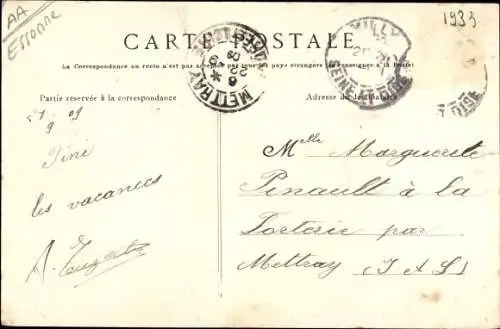 AA
ESSONNE
1933
CARTE POSTALE
La Correspondance au recto n'est pas acceptée par tous les pays étrangers (Se renseigner à la Poste)
Partie réservée à la correspondance
Adresse du destinataire
METTRAY
SEINE
9 09
Fini
les vacances
Melle Marguerite
Pinault à la
par
Mettray (I & L)